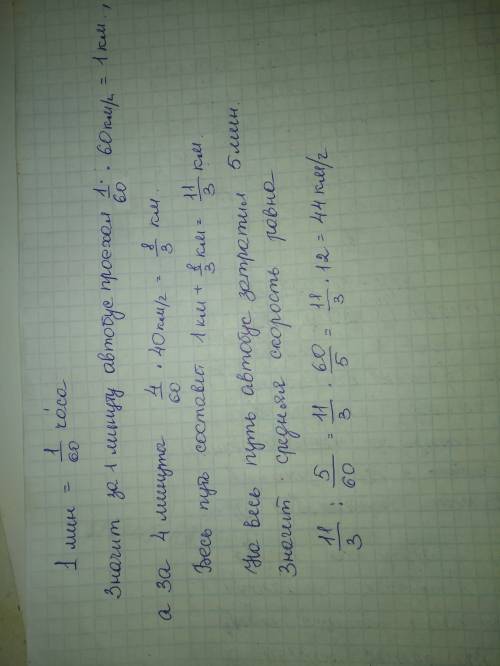 1 мин = 1/60 часа
Значит за 1 минуту автобус проехал 1/60 · 60 км/ч = 1 км.,
а за 4 минуты 4/60 · 40 км/ч = 8/3 км.
Весь путь составит 1 км + 8/3 км = 11/3 км.
На весь путь автобус затратил 5 мин.
Значит средняя скорость равна
11/3 : 5/60 = 11/3 · 60/5 = 11/3 · 12 = 44 км/ч